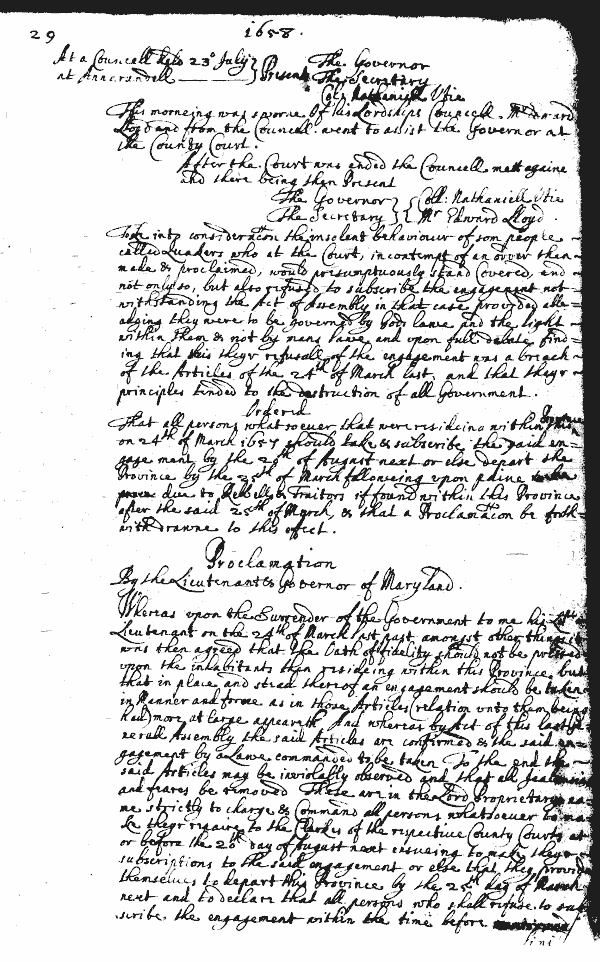 29 1658.
At a Councell held 23° July } Present The Governor
at Annarundell } The Secretary
Coll: Nathaniell Utie
This morneing was sworne of his Lordships Councell Mr Edward
Lloyd and from the Councell went to assist the Governor at
the County Court.
After the Court was ended the Councell mett againe
and there being then Present
The Governor } { Coll: Nathaniell Utie
The Secretary } { Mr Edward Lloyd.
Tooke into consideracon the insolent behaviour of som people
called Quakers who at the Court, in contempt of an order then
made & proclaimed, would presumptuously stand Covered, and
not only so, but also refused to subscribe the engagement not
withstanding the Act of Assembly in that case provided alle-
adging they were to be governed by Gods lawe and the light
within them & not by mans lawe and upon full debate find-
ing that this theyr refusall of the engagement was a breach
of the Articles of the 24th of March last, and that theyr
principles tended to the destruction of all Government.
Ordered
That all persons whatsoever that were resideing within
on 24th of March 1657 should take & subscribe the said en-
gagement by the 20th of August next or else depart the
Province by the 25th of March following upon paine
due to Rebells & Traitors if found within this Province
after the said 25th of March, & that a Proclamacon be forth-
with drawne to this effect.
Proclamation
By the Lieutenant & Governor of Maryland.
Whereas upon the Surrender of the Government to me his
Lieutenant on the 24th of March last past amongst other things it
was then agreed that the Oath of fidelity should not be pressed
upon the inhabitants then resideing within this Province, but
that in place and stead thereof an engagement should be taken
in Manner and forme as in those Articles (relation unto them being
had) more at large appeareth And whereas by Act of this last Ge
nerall Assembly the said Articles are confirmed & the said en-
gagement by a Lawe commanded to be taken To the end the
said Articles may be inviolably observed and that all jealousies
and feares be removed These are in the Lord Proprietarys na-
me strictly to charge & Command all persons whatsoever to ma
ke theyr repaire to the Clerkes of the respective County Courts at
or before the 20th day of August next ensueing to make theyr
subscriptions to the said engagement or else that they provide
themselves to depart this Province by the 25th day of March
next and to declare that all persons who shall refuse to sub
scribe the engagement within the time before